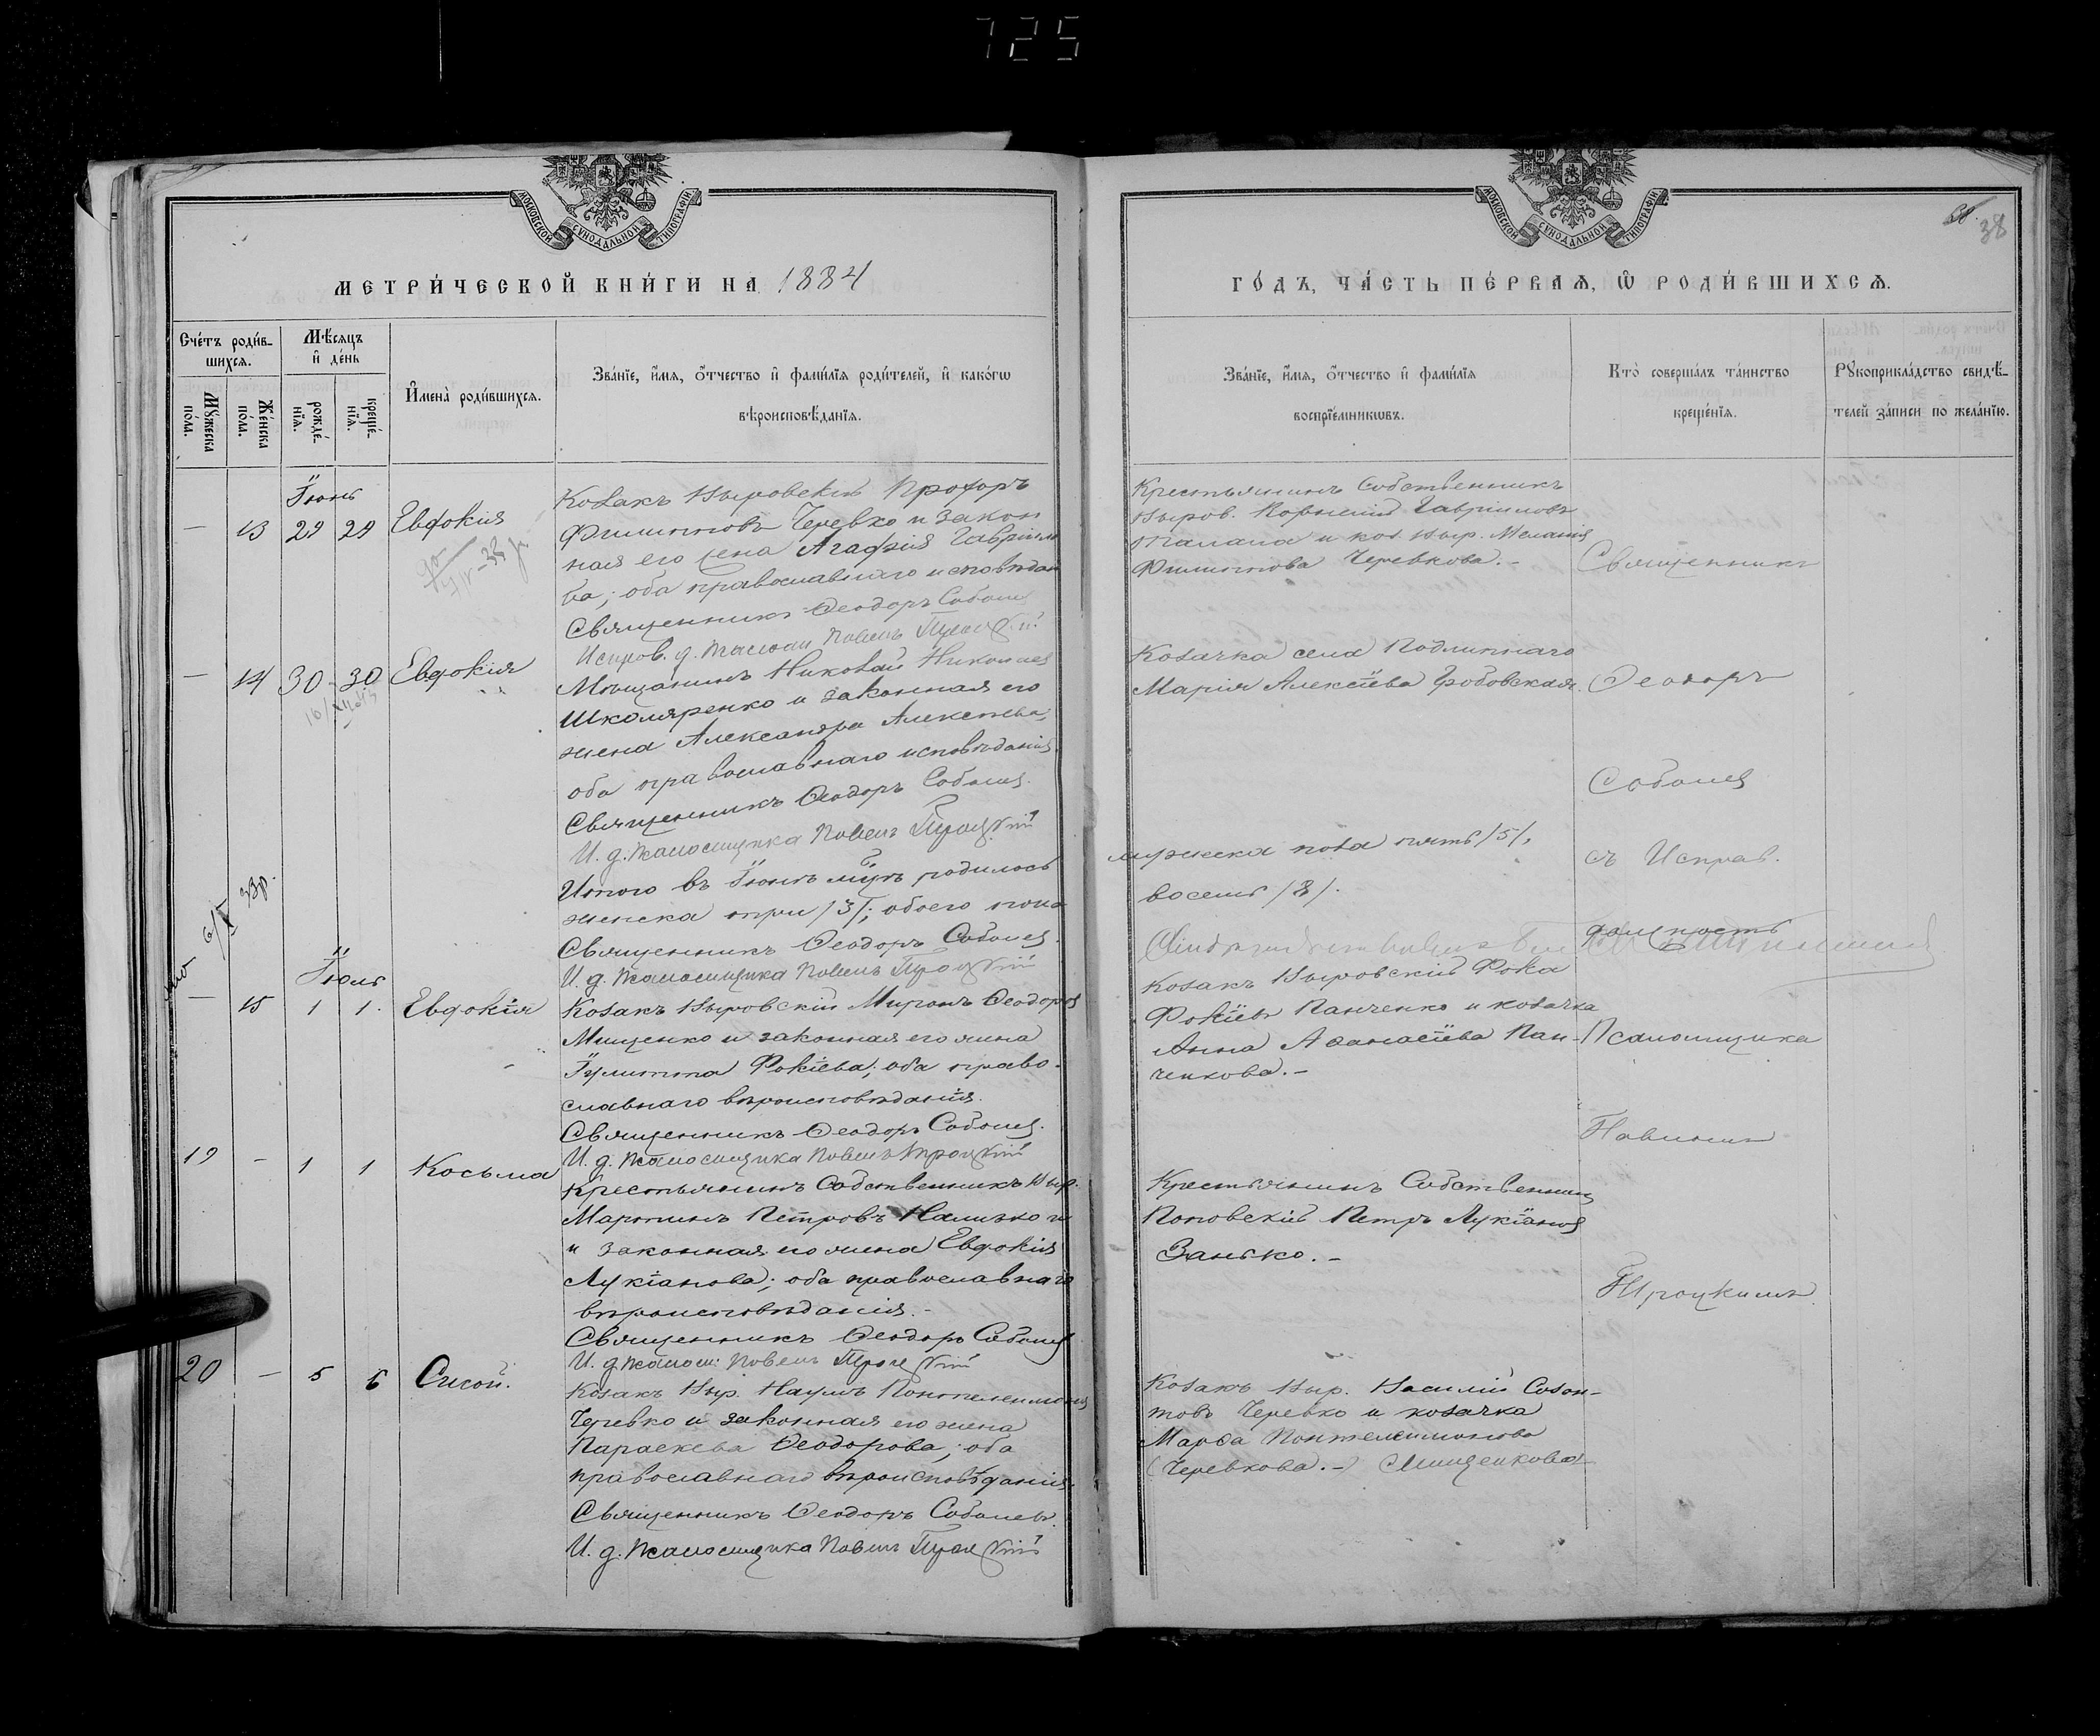 725
МОСКОВСКОЙ СѴНОДАЛЬНОЙ ТИПОГРАФІИ
МОСКОВСКОЙ СѴНОДАЛЬНОЙ ТИПОГРАФІИ
38
МЕТРИ́ЧЕСКОЙ КНИ́ГИ НА 1884
ГО́ДЪ, ЧА́СТЬ ПЕ́РВАѦ, Ѡ҆ РОДИ́ВШИХСѦ.
Сче́тъ роди́в-
шихсѧ.
Мѣ́сѧцъ
и҆ де́нь
Мꙋ́жеска
по́ла.
Же́нска
по́ла.
рожде́-
нїѧ.
креще́-
нїѧ.
И҆мена̀ роди́вшихсѧ.
Зва́нїе, и҆́мѧ, о҆́тчество и҆ фами́лїѧ роди́телей, и҆ како́гѡ
вѣроисповѣ́данїѧ.
Зва́нїе, и҆́мѧ, о҆́тчество и҆ фами́лїѧ
воспрїе́мникѡвъ.
Кто̀ соверша́лъ та́инство
креще́нїѧ.
Рꙋкоприкла́дство свидѣ́-
телей за́писи по жела́нїю.
Іюнь
— 13 29 29 Евдокія
Козакъ Выровскій Прохоръ
Филипповъ Черевко и закон
ная его жена Агафія Гавріило
ва; оба православнаго исповѣдан
Священникъ Ѳеодоръ Соболев
Исправ. д. Псалом Павелъ Троцкій
Крестьянинъ Собственникъ
Выров. Корнелій Гавріиловъ
и коз. Выр. Меланія
Филиппова Черевкова. –
Священникъ
— 14 30 30 Евдокія
Мѣщанинъ Николай Николаев
Школяренко и законная его
жена Александра Алексѣева;
оба православнаго исповѣданія
Священникъ Ѳеодоръ Соболев.
И. д. Псаломщика Павелъ Троцкій
Козачка села Подлипнаго
Марія Алексѣева Гробовская.
Ѳеодоръ
Соболев
Итого въ Іюнѣ мцѣ родилось
женска три /3/; обоего пола
Священникъ Ѳеодоръ Соболев.
И. д. Псаломщика Павелъ Троцкій
мужеска пола пять /5/,
восемь /8/.
съ Исправ.
должность
Іюль
— 15 1 1. Евдокія
Козакъ Выровскій Миронъ Ѳеодоров
Мищенко и законная его жена
Іулитта Фокіева; оба право-
славнаго вѣроисповѣданія.
Священникъ Ѳеодоръ Соболев.
И. д. Псаломщика Павелъ Троцкій
Козакъ Выровскій Фока
Фокіевъ Панченко и козачка
Анна Аѳанасіева Пан-
ченкова. –
Псаломщика
Павломъ
19 — 1 1 Косьма
Крестьянинъ Собственникъ Выр.
Мартинъ Петровъ и
и законная его жена Евдокія
Лукіанова; оба православнаго
вѣроисповѣданія. –
Священникъ Ѳеодоръ Соболев
И. д. Псалом: Павелъ Троцкій
Крестьянинъ Собственник
Поповскій Петръ Лукіанов
Занько. –
Троцкимъ.
20 — 5 6 Сисой.
Козакъ Выр. Наумъ Пантелеимонов
Черевко и законная его жена
Параскева Ѳеодорова; оба
православнаго вѣроисповѣданія.
Священникъ Ѳеодоръ Соболевъ.
И. д. Псаломщика Павелъ Троцкій
Козакъ Выр. Василій Созон-
товъ Черевко и козачка
Марѳа Пантелеимонова
(Черевкова. –) Мищенкова